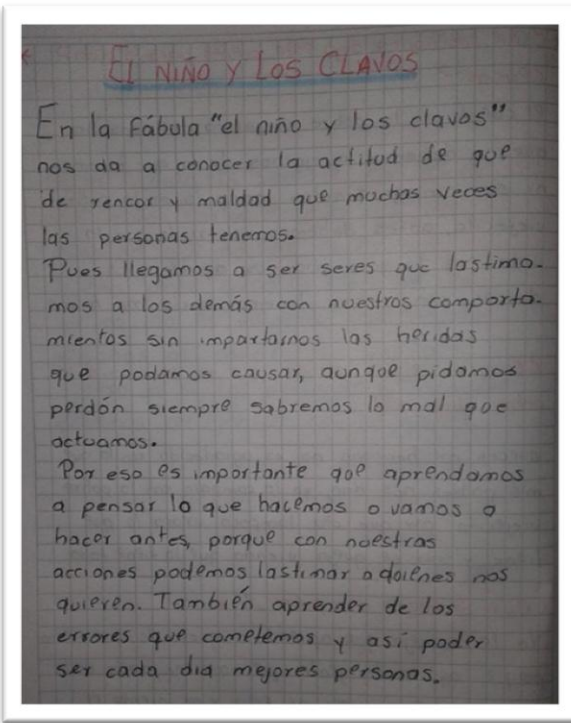 El NIÑO Y LOS CLAVOS
En la Fábula "el niño y los clavos"
nos da a conocer la actitud de que
de rencor y maldad que muchas veces
las personas tenemos.
Pues llegamos a ser seres que lastima-
mos a los demás con nuestros comporta-
mientos sin impartarnos las heridas
que podamos causar, aunque pidamos
perdón siempre sabremos lo mal que
actuamos.
Por eso es importante que aprendamos
a pensar lo que hacemos o vamos a
hacer antes, porque con nuestras
acciones podemos lastimar a quienes nos
quieren. También aprender de los
errores que cometemos y así poder
ser cada día mejores personas.